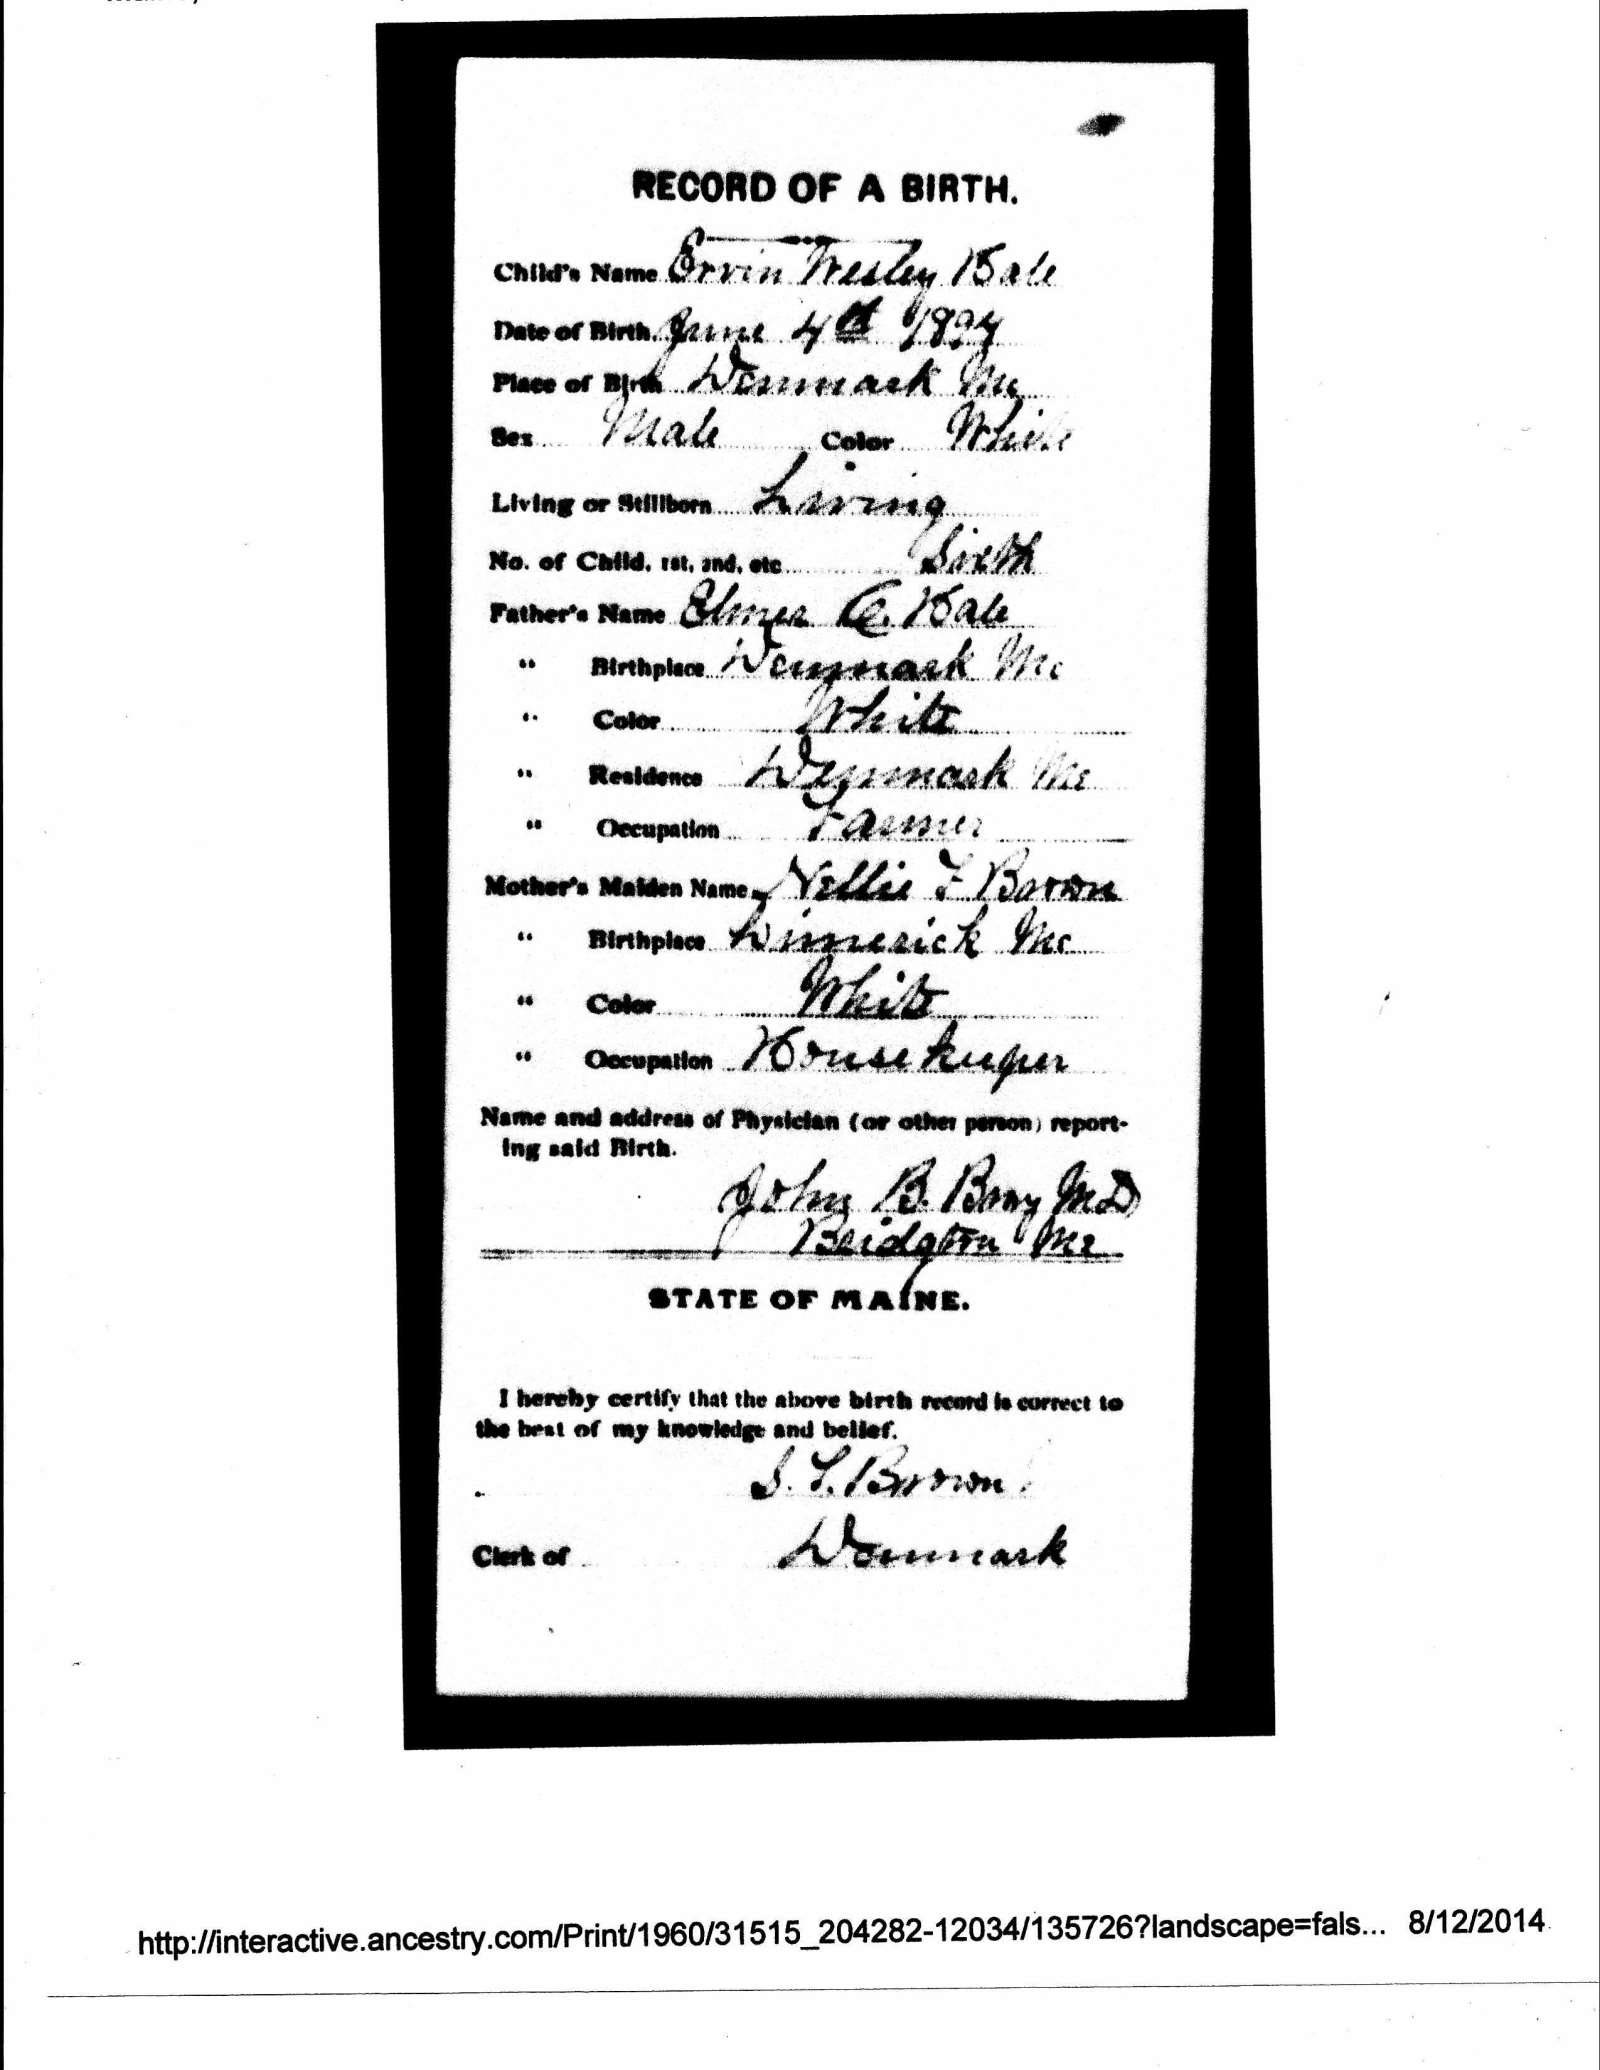 RECORD OF A BIRTH.
Child's Name Ervin Wesley Hale
Date of Birth June 4th 1894
Place of Birth Denmark Me
Sex Male Color White
Living or Stillborn Living
No. of Child, 1st, 2nd, etc Sixth
Father's Name Elmer C. Hale
" Birthplace Denmark Me
" Color White
" Residence Denmark Me
" Occupation Farmer
Mother's Maiden Name Nellie F Brown
" Birthplace Limerick Me
" Color White
" Occupation Housekeeper
Name and address of Physician (or other person) report-
ing said Birth.
John B. Bray MD
Bridgton Me
STATE OF MAINE.
I hereby certify that the above birth record is correct to
the best of my knowledge and belief.
S. T. Brown
Clerk of Denmark
http://interactive.ancestry.com/Print/1960/31515_204282-12034/135726?landscape=fals... 8/12/2014